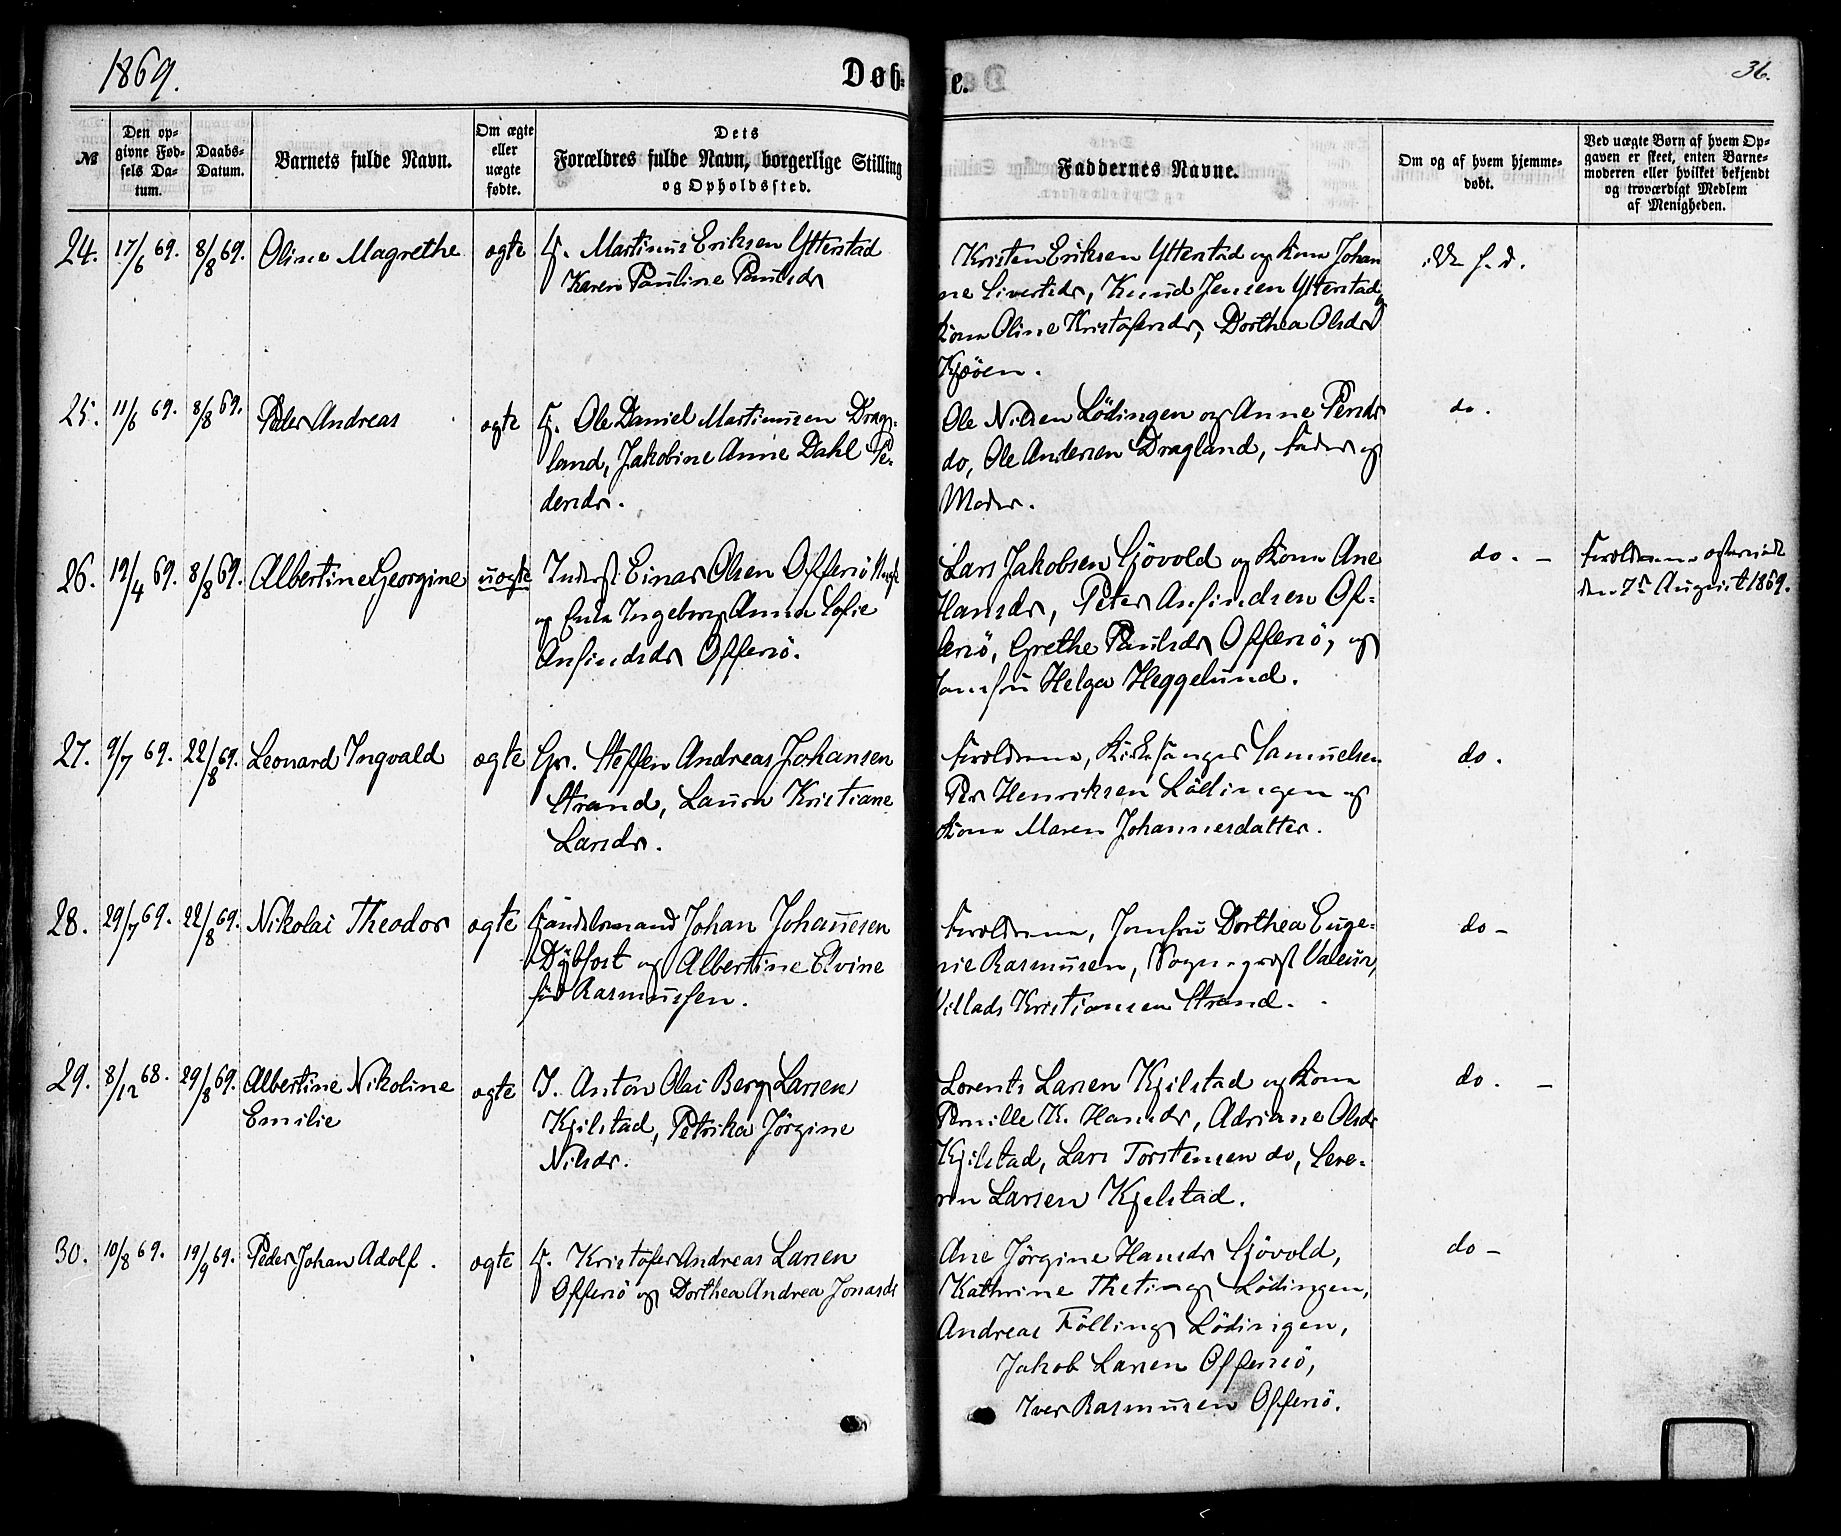 1869.
Døb-
te.
36.
№
Den op-
givne Fød-
sels Da-
tum.
Daabs-
Datum.
Barnets fulde Navn.
Om ægte
eller
uægte
fødte.
Dets
Forældres fulde Navn, borgerlige Stilling
og Opholdssted.
Faddernes Navne.
Om og af hvem hjemme-
døbt.
Ved uægte Børn af hvem Op-
gaven er skeet, enten Barne-
moderen eller hvilket bekjendt
og troværdigt Medlem
af Menigheden.
24. 17/6 69. 8/8 69. Oline Magrethe ægte F. Martinus Eriksen Ytterstad
Karen Pauline Paulsdr
Kristen Eriksen Ytterstad og Kona Johan
ne Sivertsdr, Knud Jensen Ytterstad og
Kona Oline Kristofersdr, Dorthea Olsdr
Kjøen.
h. d.
25. 11/6 69. 8/8 69. Peder Andreas ægte F. Ole Daniel Martinusen Drag-
land, Jakobine Anne Dahl Pe-
dersdr.
Ole Nilsen Lödingen og Anne Pedersdr
do, Ole Andersen Dragland, Fader og
Moder.
do.
26. 19/4 69. 8/8 69. Albertine Georgine uægte Inderst Einar Olsen Offersö
og Enke Ingeborg Anna Sofie
Anfindsdr Offersö.
Lars Jakobsen Sjövold og Kona Ane
Hansdr, Peter Anfindsen Of-
fersö, Grethe Paulsdr Offersö, og
Jomfru Helga Heggelund.
do. –
Forældrene
den 7de August 1869.
27. 9/7 69. 22/8 69. Leonard Ingvald ægte Gr. Steffen Andreas Johansen
Strand, Laura Kristiane
Larsdr.
Forældrene, Kirkesanger Samuelsen
Per Henriksen Lödingen og
Kona Maren Johannesdatter.
do.
28. 29/7 69. 22/8 69. Nikolai Theodor ægte Handelsmand Johan Johannesen
Dybfost og Albertine Elvine
född Rasmussen.
Forældrene, Jomfru Dorthea Euge-
nie Rasmusen, Sogneprest Valeur,
Villads Kristiansen Strand.
do –
29. 8/12 68. 29/8 69. Albertine Nikoline
Emilie
ægte I. Anton Olai Berg Larsen
Kjilstad, Petrika Jörgine
Nilsdr.
Lorents Larsen Kjilstad og Kona
Pernille K. Hansdr, Adriane Olsdr
Kjilstad, Lars Torstensen do, Seve-
rin Larsen Kjelstad.
do. –
30. 10/8 69. 19/9 69. Peder Johan Adolf. ægte F. Kristofer Andreas Larsen
Offersö og Dorthea Andrea Jonasdr
Ane Jörgine Hansdr Sjövold,
Kathrine Theting Lödingen,
Andreas Fölling Lödingen,
Jakob Larsen Offersö,
Iver Rasmusen Offersö.
do –